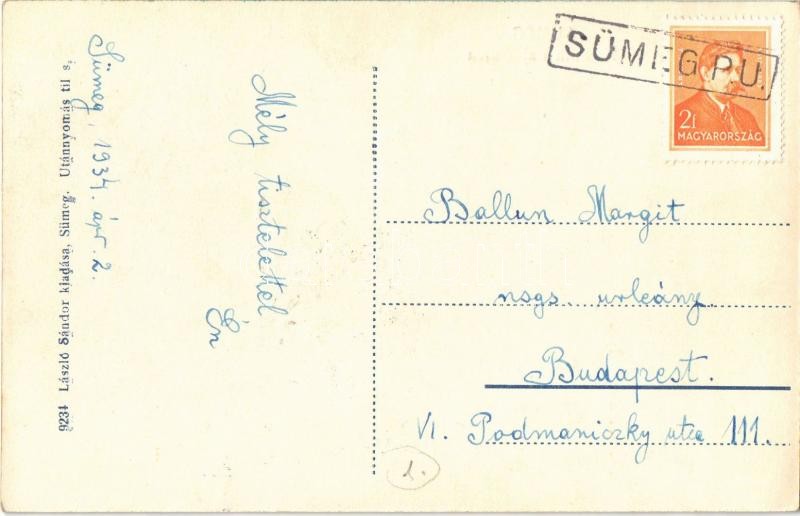 SÜMEG P.U.
2f
MAGYARORSZÁG
Sümeg, 1934. ápr. 2.
Mély tisztelettel
Én
Ballun Margit
nsgs. urleány.
Budapest.
VI. Podmaniczky utca 111.
9234 László Sándor kiadása, Sümeg. Utánnyomás til s.
1.